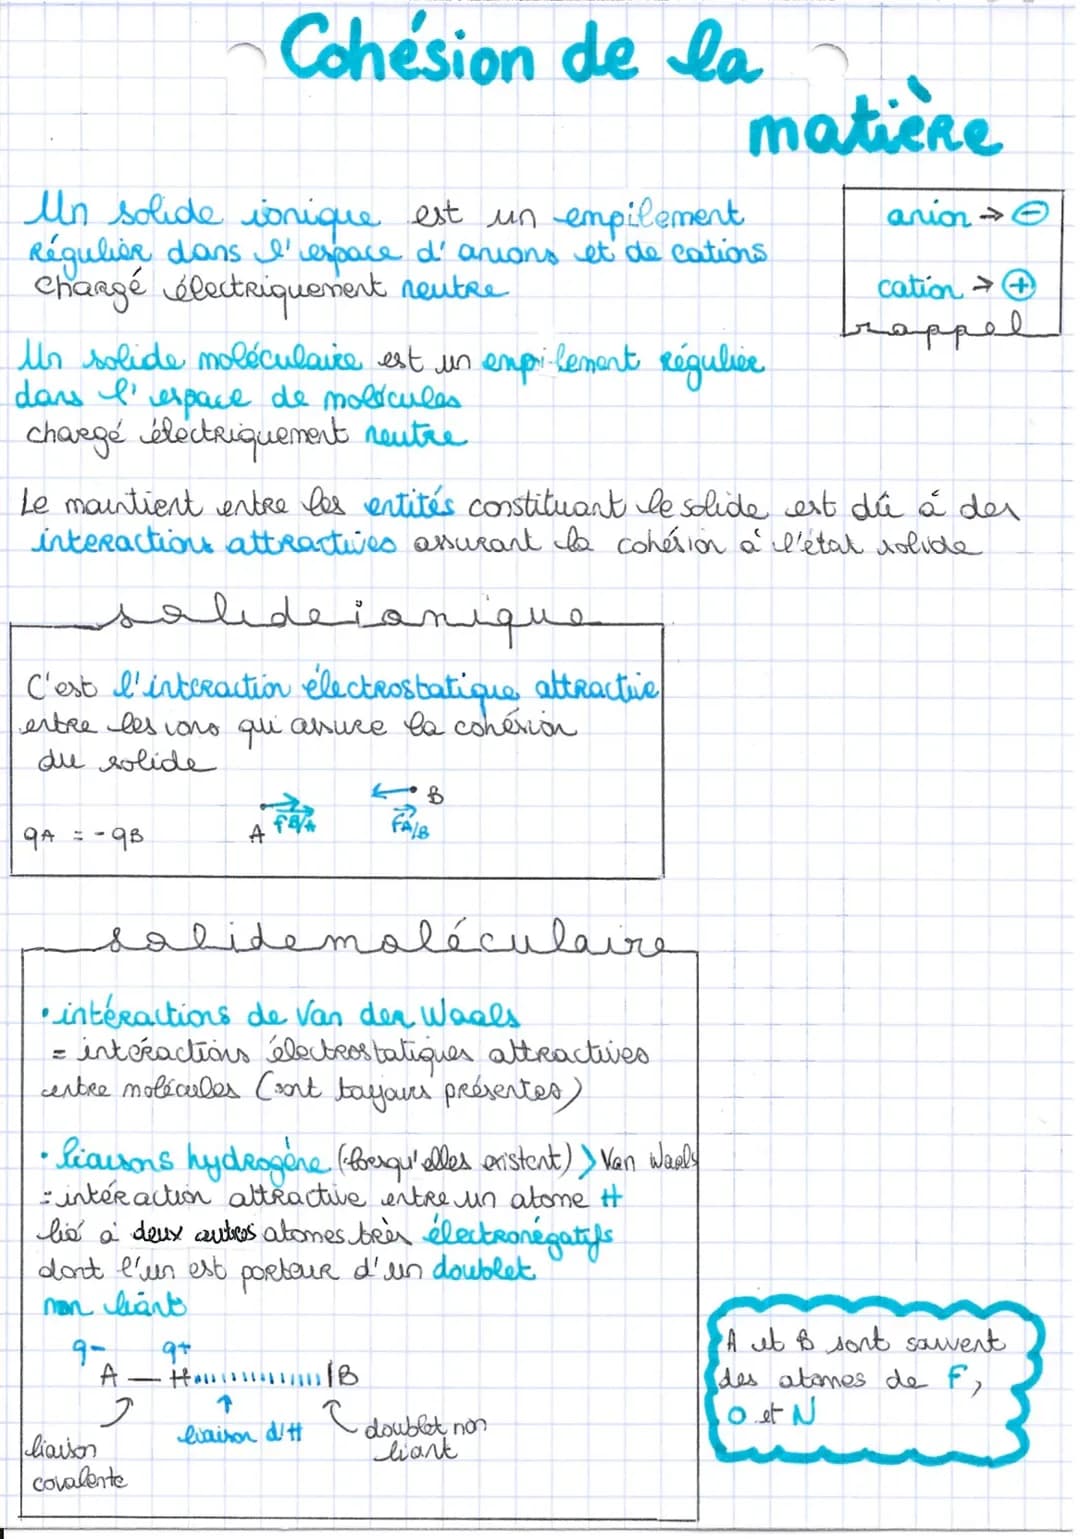 Cohésion de la
matière
Un solide ionique est un empilement
Régulier dans l'espace d'anions et de cations
chargé électriquement neutre
anion → ⊖
cation → ⊕
rappel
Un solide moléculaire est un empilement régulier
dans l'espace de molécules
chargé électriquement neutre
Le maintient entre les entités constituant le solide est dû à des
interactions attractives assurant la cohésion à l'état solide
solide ionique
C'est l'intéraction électrostatique attractive
entre les ions qui assure la cohésion
du solide
qA = -qB
A
FB/A
B
FA/B
solide moléculaire
• intéractions de Van der Waals
= intéractions électrostatiques attractives
entre molécules (sont toujours présentes)
• liaisons hydrogène (lorsqu'elles existent) > Van Waals
= intéraction attractive entre un atome H
lié à deux autres atomes très électronégatifs
dont l'un est porteur d'un doublet
non liant
q- q+
A — H ııııııııııı |B
liaison d'H
doublet non
liant
liaison
covalente
A et B sont souvent
des atomes de F,
O et N